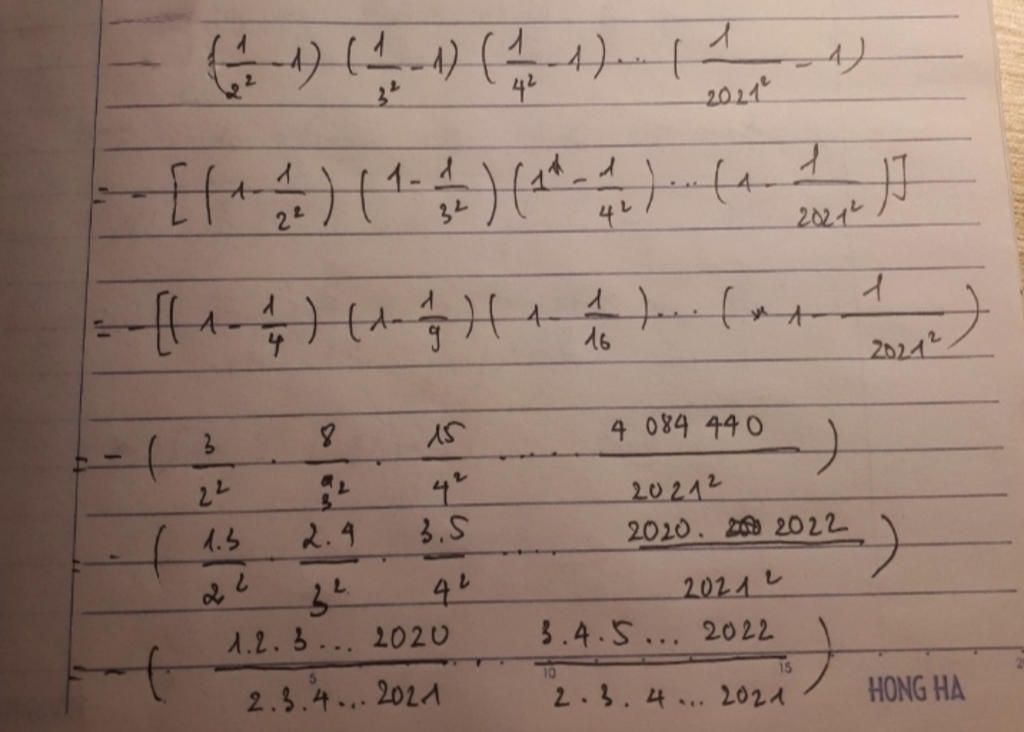 (1/2² - 1) (1/3² - 1) (1/4² - 1) ... (1/2021² - 1)
= - [(1 - 1/2²) (1 - 1/3²) (1 - 1/4²) ... (1 - 1/2021²)]
= - [(1 - 1/4) (1 - 1/9) (1 - 1/16) ... (1 - 1/2021²)
= - (3/2² . 8/3² . 15/4² ..... 4 084 440/2021²)
= - (1.3/2² . 2.4/3² . 3.5/4² ..... 2020. 2022/2021²)
= - (1.2.3 ... 2020/2.3.4 ... 2021 . 3.4.5 ... 2022/2.3.4 ... 2021)
5 10 15 2
HONG HA